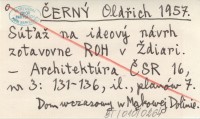 ČERNÝ Oldřich 1957.
Súťaž na ideový návrh
zotavovne ROH v Ždiari.
— Architektúra ČSR 16,
nr 3: 131-136, il., planów 7.
Dom wczasowy w Mąkowej Dolinie.